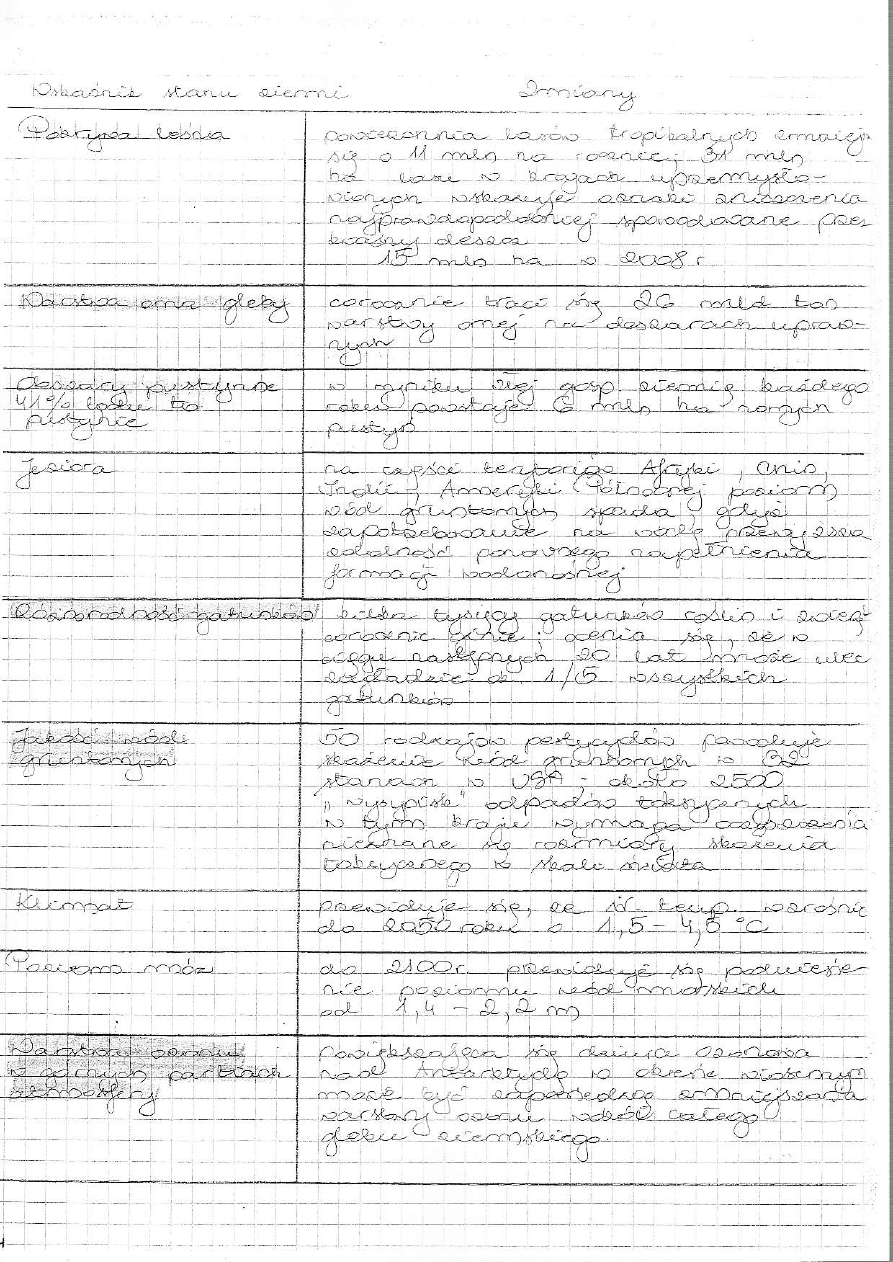 Wskaźnik stanu ziemi Zmiany
Pokrycie leśna
powierzchnia lasów tropikalnych zmniejsz
się o 11 mln na rocznie; 31 mln
ha lasu w krajach uprzemysło-
wionych wskazuje oznaki zniszczenia
najprawdopodobniej spowodowane przez
kwaśny deszcz
15 mln ha w 2008 r
Warstwa orna gleby
corocznie traci się 26 mld ton
warstwy ornej na obszarach upraw-
nych
Obszary pustynne
41% lądu to
pustynie
w wyniku złej gosp ziemią każdego
roku powstaje 6 mln ha nowych
pustyń
Jeziora
na części terytoriów Afryki, Chin,
Indii, Ameryki Północnej poziom
wód gruntowych spada gdyż
zapotrzebowanie na wodę przewyższa
zdolność ponownego napełnienia
formacji wodonośnej
Różnorodność gatunków
kilka tysięcy gatunków roślin i zwierz
corocznie ginie; ocenia się, że w
ciągu następnych 20 lat może ulec
zagładzie ok 1/5 wszystkich
gatunków
Jakość wód
gruntowych
50 rodzajów pestycydów powoduje
skażenie wód gruntowych w 32
stanach w USA; około 2500
„wysypisk" odpadów toksycznych
w tym kraju wymaga oczyszczenia
nieznane są rozmiary skażenia
toksycznego w skali świata
Klimat
przewiduje się, że śr. temp. wzrośnie
do 2050 roku o 1,5 – 4,5 °C
Poziom mórz
do 2100 r. przewiduje się podniesie-
nie poziomu wód morskich
od 1,4 – 2,2 m
Warstwa ozonu
w górnych partiach
atmosfery
powiększająca się dziura ozonowa
nad Antarktydą w okresie wiosennym
może być zapowiedzią zmniejszania
warstwy ozonu wokół całego
globu ziemskiego.